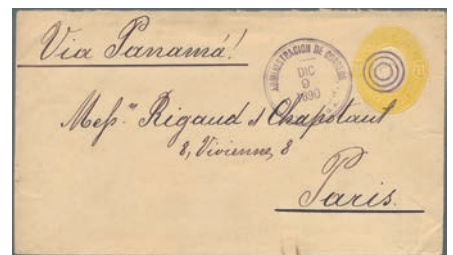 Via Panamá!
ADMINISTRACION DE CORREOS
DIC
9
1890
Messrs Rigaud & Chapotaut
8, Vivienne, 8
Paris.